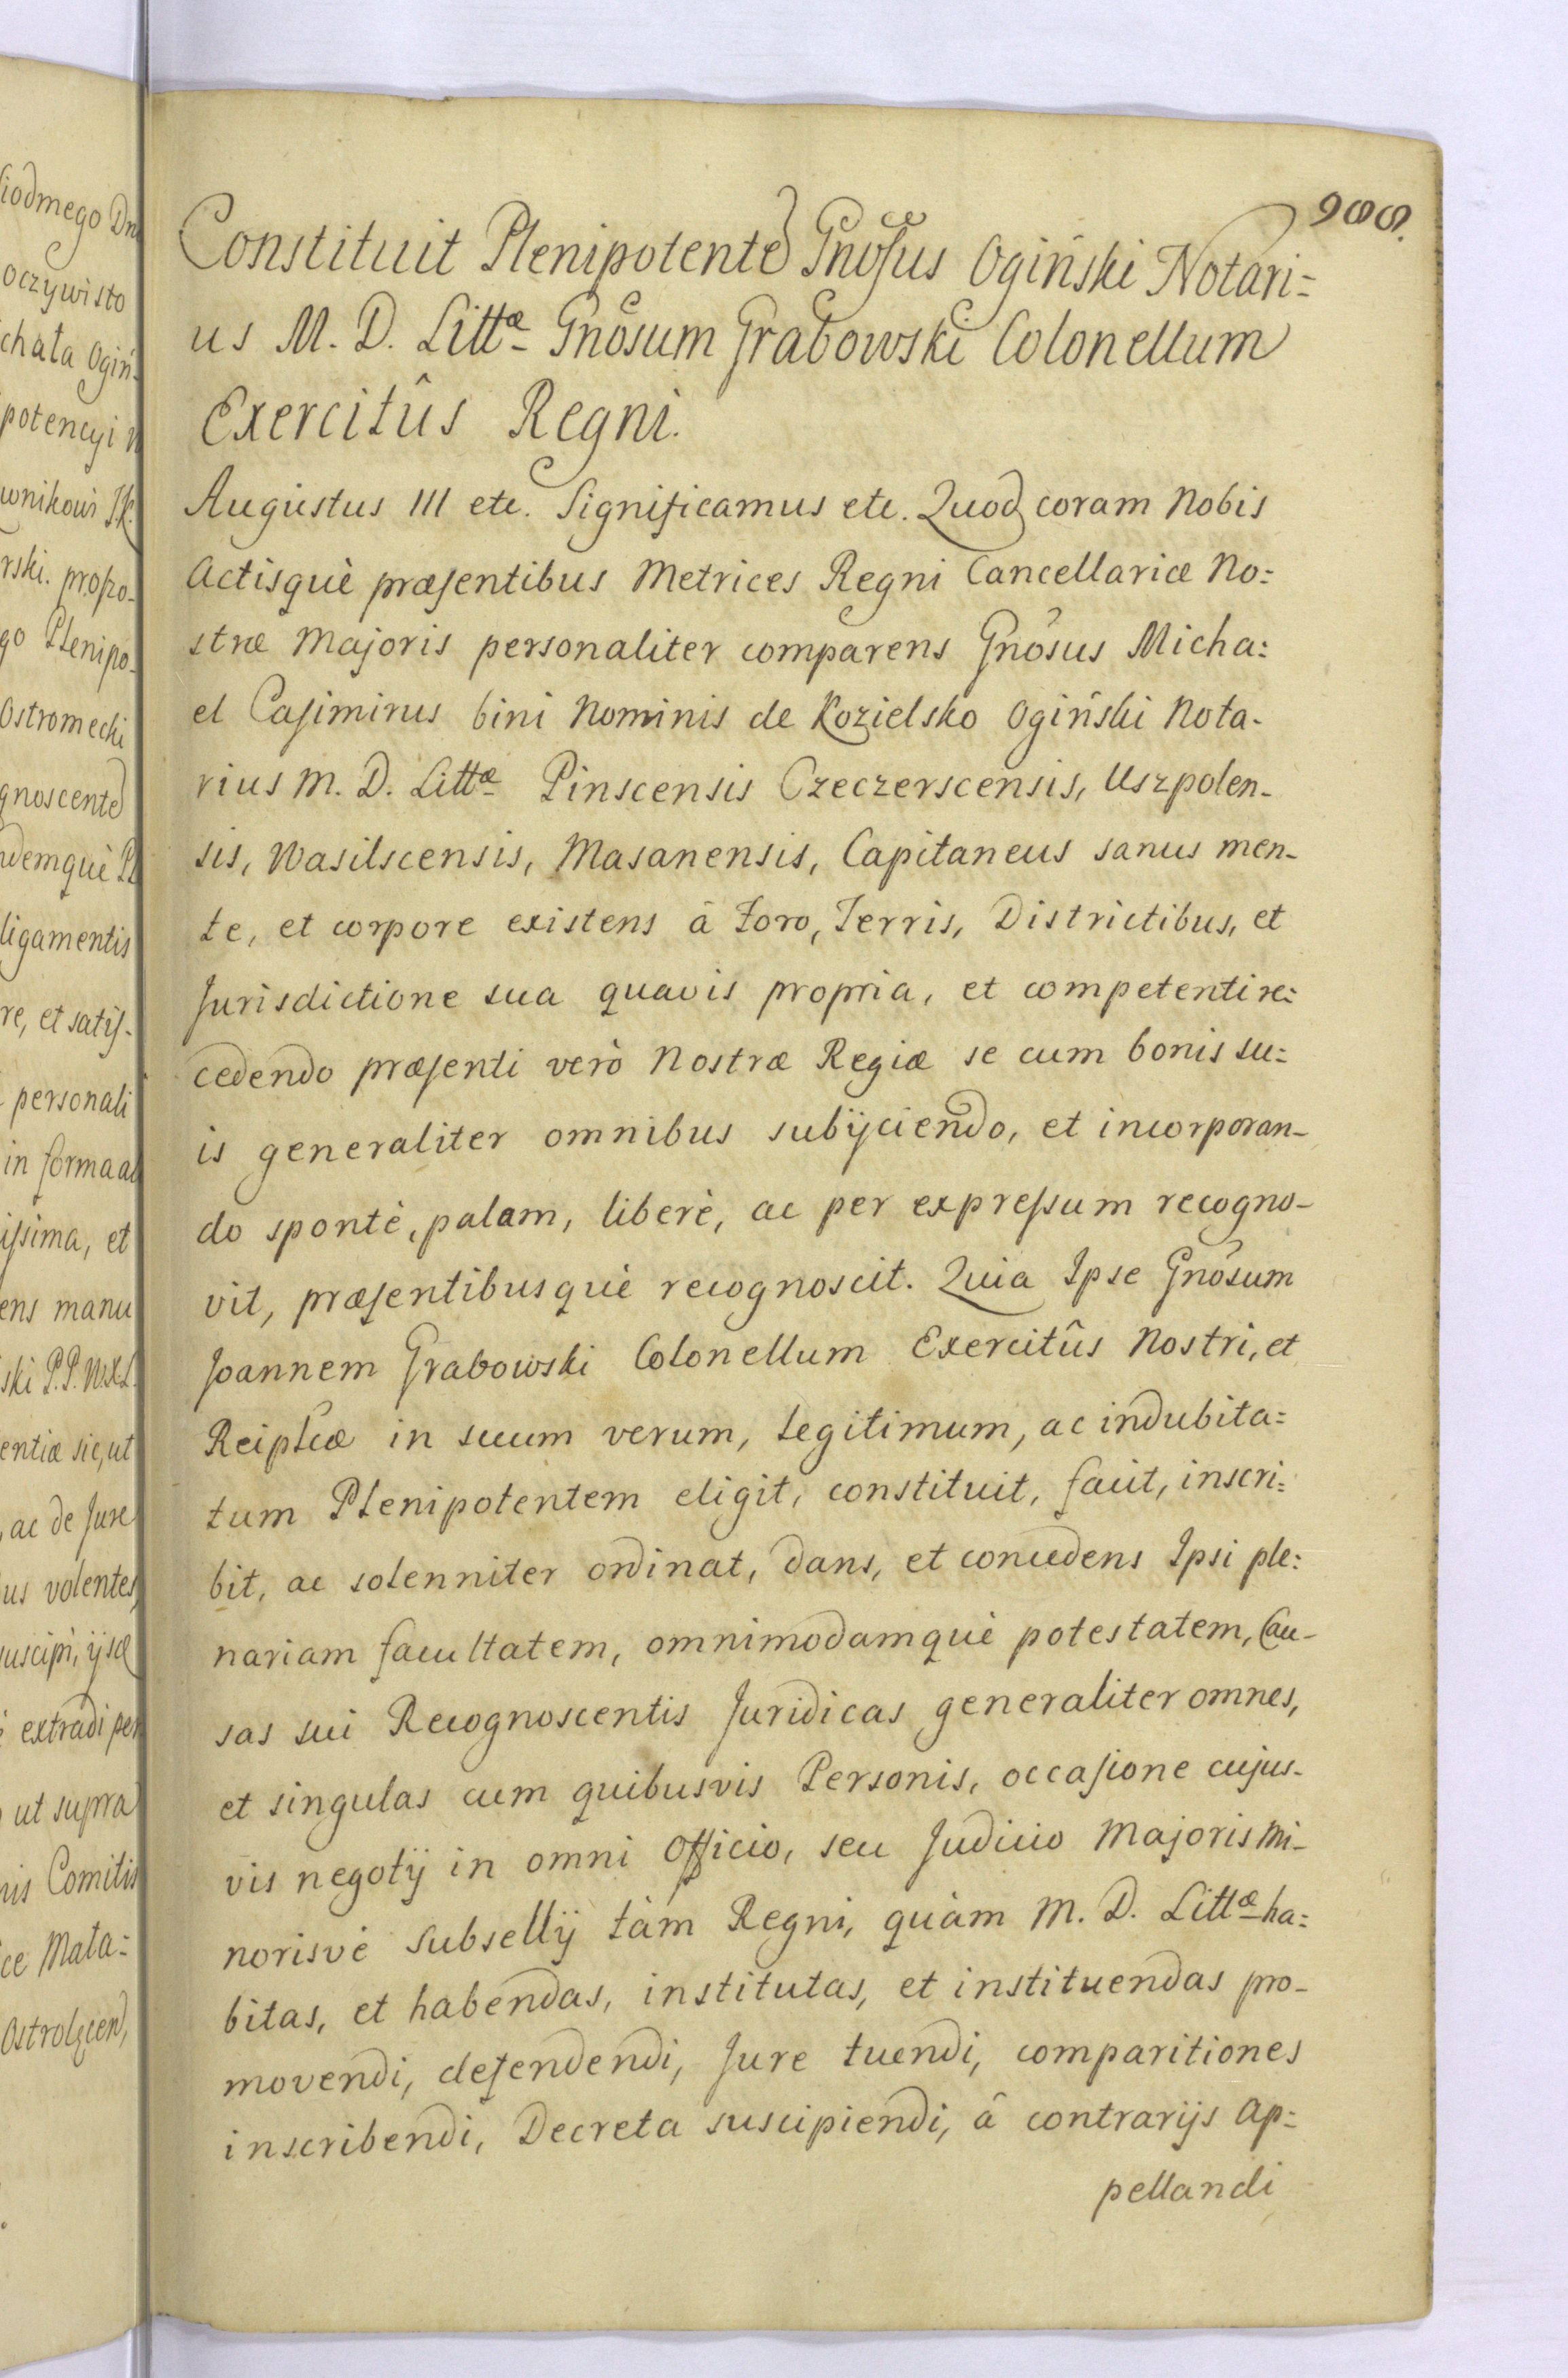 988.
Constituit Plenipotente Gnosus Ogiński Notari=
us M. D. Littæ Gnosum Grabowski Colonellum
Exercitûs Regni.
Augustus III etc. Significamus etc. Quod coram Nobis
Actisquè præsentibus Metrices Regni Cancellariæ No=
stræ Majoris personaliter comparens Gnosus Micha=
el Casimirus bini Nominis de Kozielsko Ogiński Nota-
rius M. D. Littæ Pinscensis Czeczerscensis, Uszpolen-
sis, Wasilscensis, Masanensis, Capitaneus sanus men-
te, et corpore existens â Foro, Terris, Districtibus, et
Jurisdictione sua quavis propria, et competenti re=
cedendo præsenti verò Nostræ Regiæ se cum bonis su=
is generaliter omnibus subijciendo, et incorporan-
do spontè, palam, liberè, ac per expressum recogno-
vit, præsentibusquè recognoscit. Quia Ipse Gnosum
Joannem Grabowski Colonellum Exercitûs Nostri, et
Reiplcæ in suum verum, legitimum, ac indubita=
tum Plenipotentem eligit, constituit, facit, inscri=
bit, ac solenniter ordinat, dans, et concedens Ipsi ple=
nariam facultatem, omnimodamquè potestatem, Cau-
sas sui Recognoscentis Juridicas generaliter omnes,
et singulas cum quibusvis Personis, occasione cujus-
vis negotij in omni Officio, seu Judicio Majoris Mi-
norisvè subsellij tàm Regni, quàm M. D. Littæ ha=
bitas, et habendas, institutas, et instituendas pro-
movendi, defendendi, Jure tuendi, comparitiones
inscribendi, Decreta suscipiendi, â contrarijs Ap=
pellandi